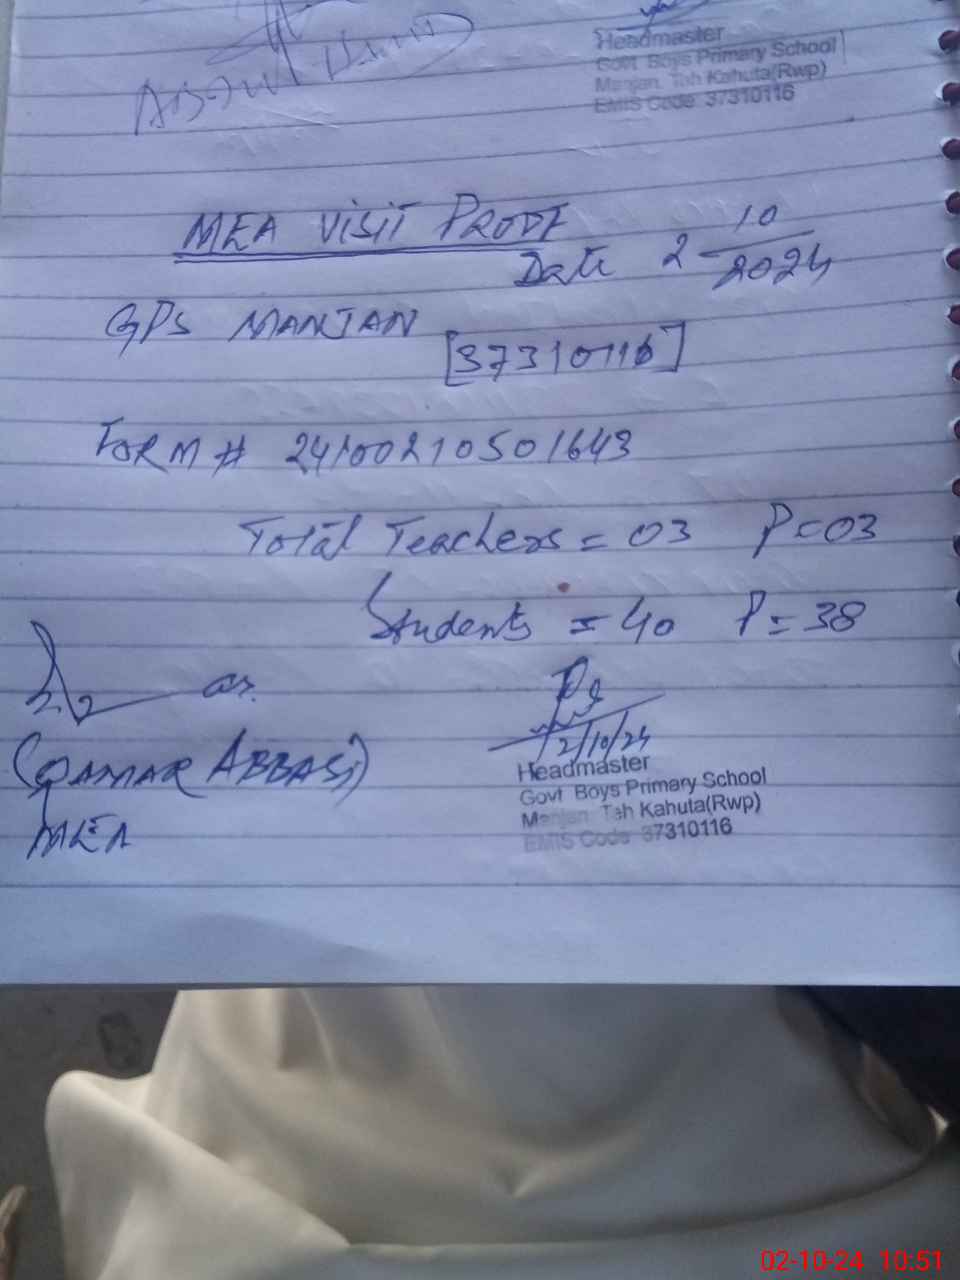 Headmaster
Govt Boys Primary School
Manjan. Teh Kahuta(Rwp)
EMIS Code 37310116
MEA VISIT PROOF
Date 2-10/2024
GPS MANJAN
[37310116]
FORM # 24100210501643
Total Teachers = 03 P=03
Students = 40 P=38
(QAMAR ABBASI)
MEA
2/10/24
Headmaster
Govt Boys Primary School
Manjan. Teh Kahuta(Rwp)
EMIS Code 37310116
02-10-24 10:51